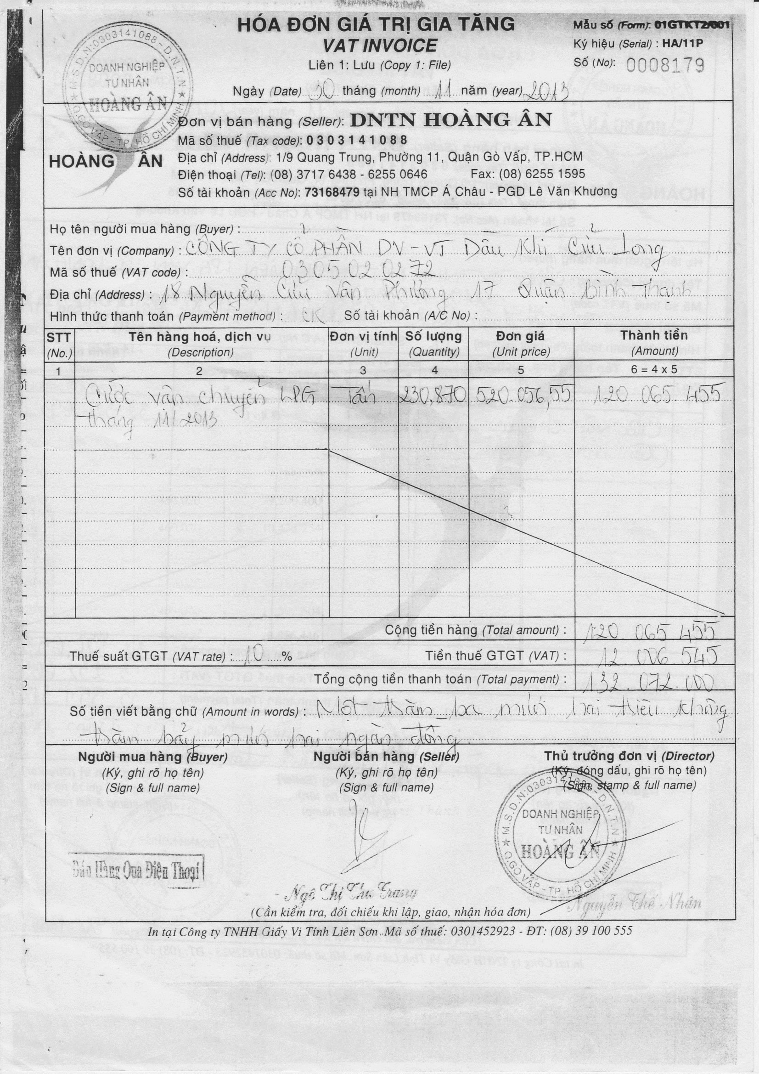 HÓA ĐƠN GIÁ TRỊ GIA TĂNG
VAT INVOICE
Liên 1: Lưu (Copy 1: File)
Ngày (Date) 30 tháng (month) 11 năm (year) 2013
Mẫu số (Form): 01GTKT2/001
Ký hiệu (Serial) : HA/11P
Số (No): 0008179
M.S.D.N:0303141088-D.N.T.N
DOANH NGHIỆP
TƯ NHÂN
HOÀNG ÂN
Q.GÒ VẤP - TP. HỒ CHÍ MINH
HOÀNG ÂN
Đơn vị bán hàng (Seller): DNTN HOÀNG ÂN
Mã số thuế (Tax code): 0303141088
Địa chỉ (Address): 1/9 Quang Trung, Phường 11, Quận Gò Vấp, TP.HCM
Điện thoại (Tel): (08) 3717 6438 - 6255 0646 Fax: (08) 6255 1595
Số tài khoản (Acc No): 73168479 tại NH TMCP Á Châu - PGD Lê Văn Khương
Họ tên người mua hàng (Buyer) :
Tên đơn vị (Company) : CÔNG TY CỔ PHẦN DV-VT Dầu Khí Cửu Long
Mã số thuế (VAT code) : 0305020272
Địa chỉ (Address) : 18 Nguyễn Cửu Vân Phường 17 Quận Bình Thạnh
Hình thức thanh toán (Payment method) : CK Số tài khoản (A/C No) :
STT (No.) Tên hàng hoá, dịch vụ (Description) Đơn vị tính (Unit) Số lượng (Quantity) Đơn giá (Unit price) Thành tiền (Amount)
1 2 3 4 5 6 = 4 x 5
Cước vận chuyển LPG Tấn 230,870 520.056,55 120.065.455
tháng 11/2013
Cộng tiền hàng (Total amount) : 120 065 455
Thuế suất GTGT (VAT rate) : 10 % Tiền thuế GTGT (VAT) : 12 006 545
Tổng cộng tiền thanh toán (Total payment) : 132.072.000
Số tiền viết bằng chữ (Amount in words) : Một trăm ba mươi hai triệu không
trăm bảy mươi hai ngàn đồng.
Người mua hàng (Buyer) Người bán hàng (Seller) Thủ trưởng đơn vị (Director)
(Ký, ghi rõ họ tên) (Ký, ghi rõ họ tên) (Ký, đóng dấu, ghi rõ họ tên)
(Sign & full name) (Sign & full name) (Sign, stamp & full name)
M.S.D.N:0303141088-D.N.T.N
DOANH NGHIỆP
TƯ NHÂN
HOÀNG ÂN
Q.GÒ VẤP - TP. HỒ CHÍ MINH
Bán Hàng Qua Điện Thoại
Ngô Thị Thu Trang
Nguyễn Thế Nhân
(Cần kiểm tra, đối chiếu khi lập, giao, nhận hóa đơn)
In tại Công ty TNHH Giấy Vi Tính Liên Sơn. Mã số thuế: 0301452923 - ĐT: (08) 39 100 555